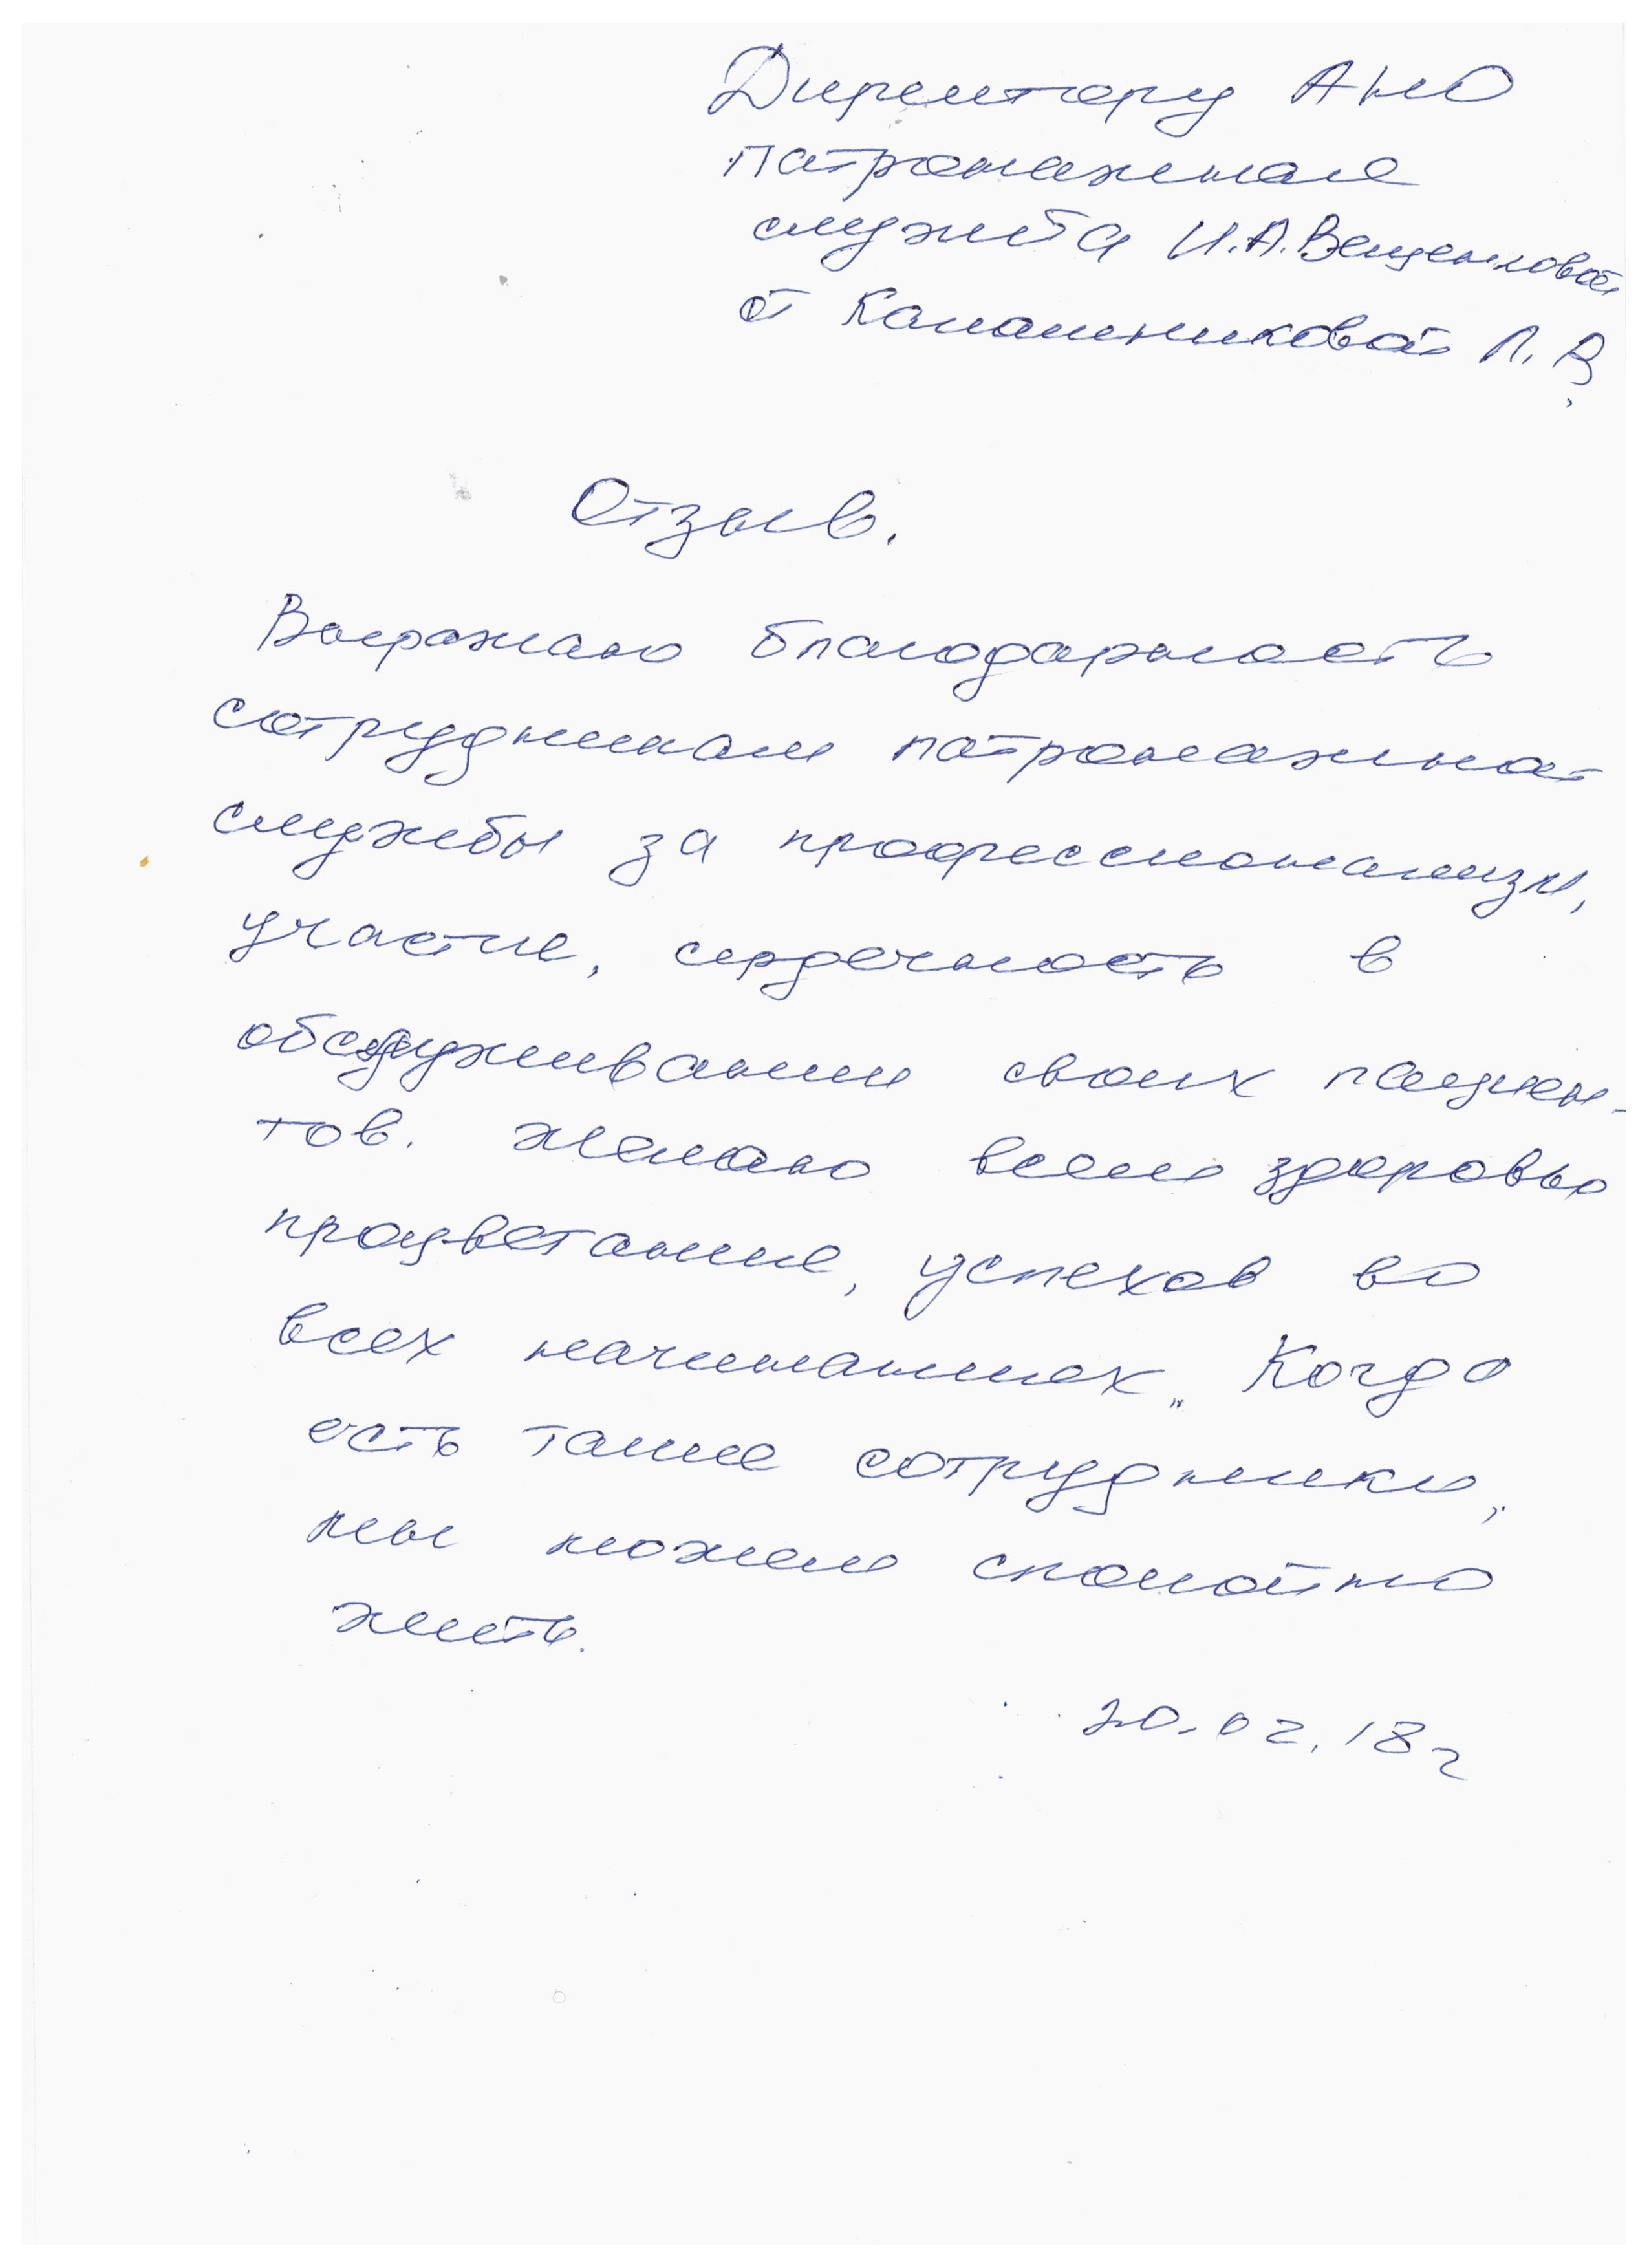 Директору АНО
патронажная
служба И.А. Вещенковой
от Калашниковой Л. В.
Отзыв.
Выражаю благодарность
сотрудникам патронажной
службы за профессионализм,
участие, сердечность в
обслуживании своих пациен-
тов. Желаю всем здоровья
процветание, успехов во
всех начинаниях. Когда
есть такие сотрудники,
мы можем спокойно
жить.
20.02.18г